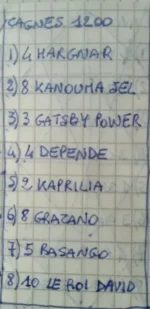 CAGNES 1200
1) 4 HARGNAR
2) 8 KANOUHA JEL
3) 3 GATSBY POWER
4) 4 DEPENDE
5) 2 KAPRILIA
6) 8 GRAZANO
7) 5 BASANGO
8) 10 LE ROI DAVID